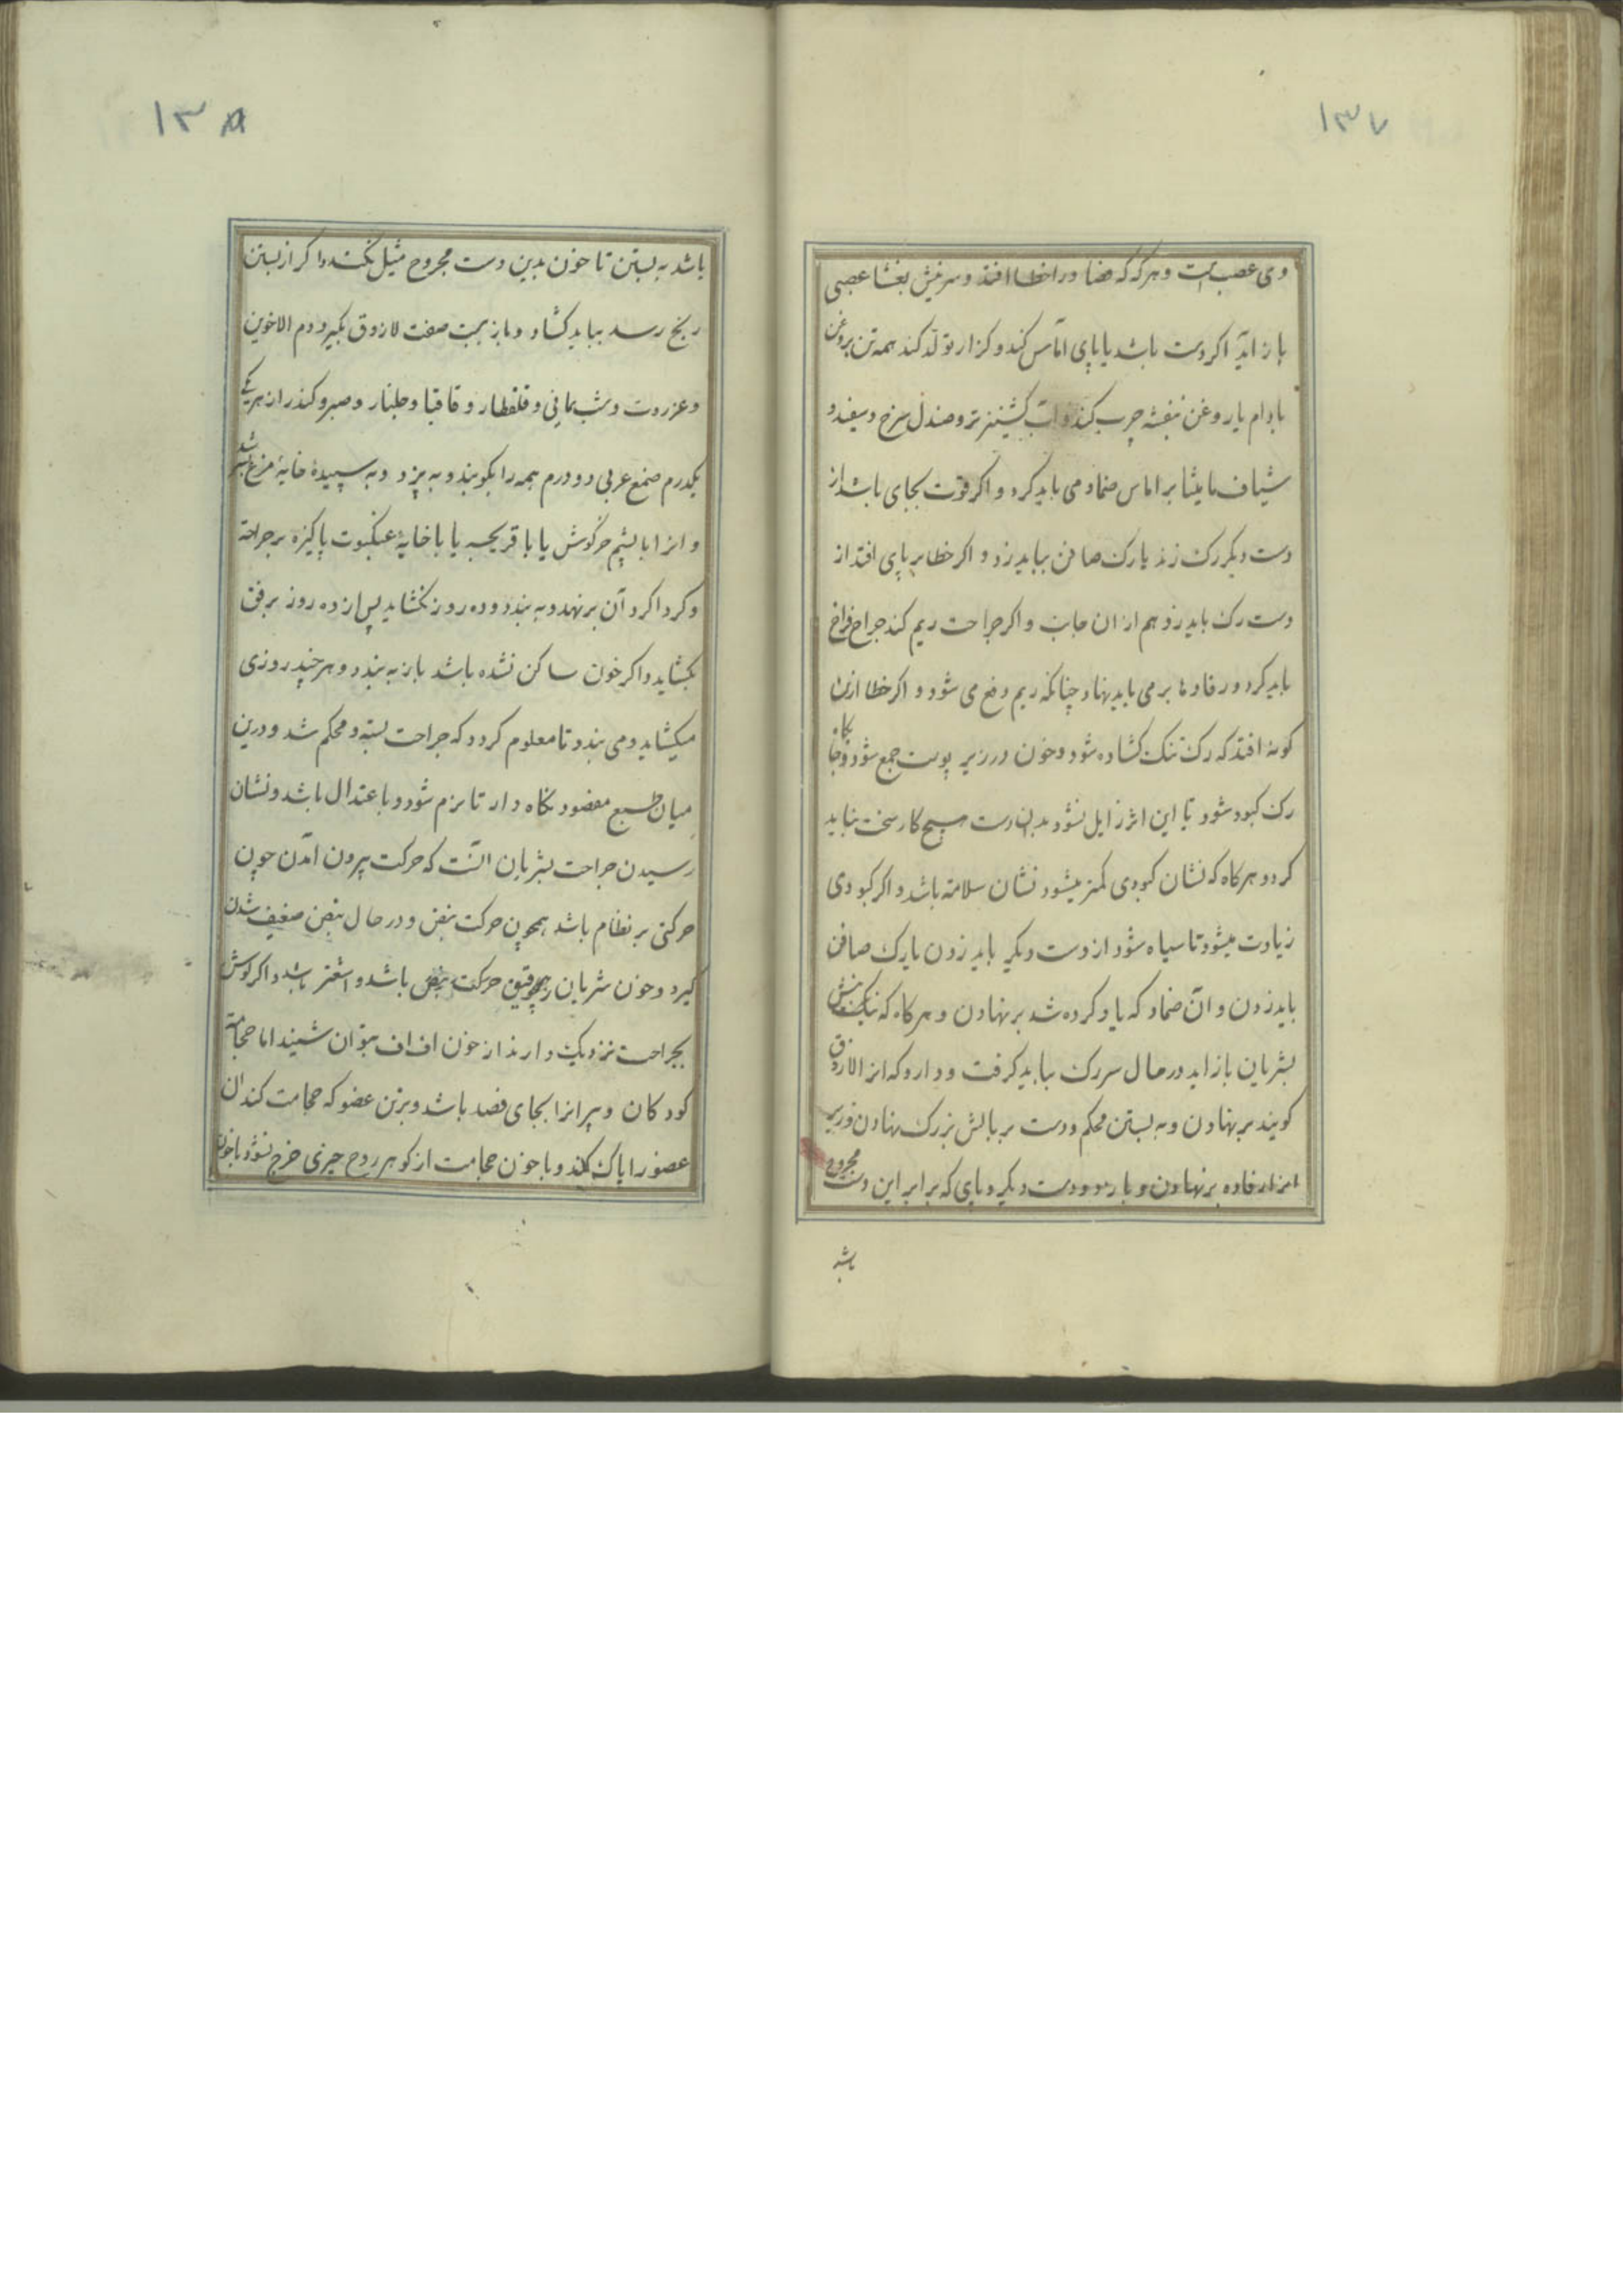 ۱۳۷
وی عصب است و هر که که فصاد را خطا افتد و سر نیش بغشا عصبی
باز اید اگر دست باشد یا پای اماس کند و کزاز تولد کند همه تن بروغن
بادام یا روغن بنفشه چرب کند و اب کشنیز تر و صندل سرخ و سفید و
شیاف مامیثا بر اماس ضماد می باید کرد و اکر قوت بجای باشد از
دست دیکر رک زند یا رک صافن بباید زد و اکر خطا بر پای افتد از
دست رک باید زد هم از ان جانب و اکر جراحت ریم کند جراح فراخ
باید کرد و رفادها بر می باید نهاد چنانکه ریم دفع می شود و اکر خطا ازین
کونه افتد که رک تنک کشاده شود و خون در زیر پوست جمع شود و جایکاه
رک کبود شود تا این اثر زایل نشود بدان دست هیچ کار سخت نباید
کرد و هرکاه که نشان کبودی کمتر میشود نشان سلامة باشد و اکر کبودی
زیادت میشود تا سیاه شود از دست دیکر باید زدن یا رک صافن
باید زدن و آن ضماد که یاد کرده شد بر نهادن و هرکاه که نیش
بشریان باز اید در حال سر رک بباید کرفت و دارو که انرا لازوق
کویند بر نهادن و به بستن محکم و دست بر بالش بزرک نهادن و زیر
انرا رفاده بر نهادن و بازو و دست دیکر و پای که برابر این دست مجروح
باشد
۱۳۸
باشد به بستن تا خون بدین دست مجروح میل نکند و اکر از بستن
رنج رسد بباید کشاد و باز بست صفت لازوق بکیرد دم الاخوین
و عنزروت و شب یمانی و قلقطار و قاقیا و جلنار و صبر و کندر از هر یکی
یکدرم صمغ عربی دو درم همه را بکوبند و به پزد و به سپیدۀ خایۀ مرغ بسرشد
و انرا با پشیم خرکوش یا با قریحه یا با خایۀ عنکبوت پاکیزه بر جراحة
و کرداکرد آن بر نهد و به بندد و ده روز نکشاید پس از ده روز برفق
بکشاید و اکر خون ساکن نشده باشد باز به بندد و هر چند روزی
میکشاید و می بندد تا معلوم کردد که جراحت بسته و محکم شد و درین
میان طبع مفصود نکاه دارد تا نرم شود و باعتدال باشد و نشان
رسیدن جراحت بشریان آنست که حرکت بیرون آمدن چون
حرکتی بر نظام باشد همچون حرکت نبض و در حال نبض ضعیف شدن
کیرد و خون شریان رقیق حرکت نبض باشد و اشقر باشد و اکر کوش
بجراحت نزدیک دارند از خون اف اف بتوان شنید اما حجامة
کودکان و پیرانرا بجای فصد باشد و بر تن عضو که حجامت کند آن
عضو را پاک کند و با خون حجامت از کوهر روح چیزی خرج نشود با خون